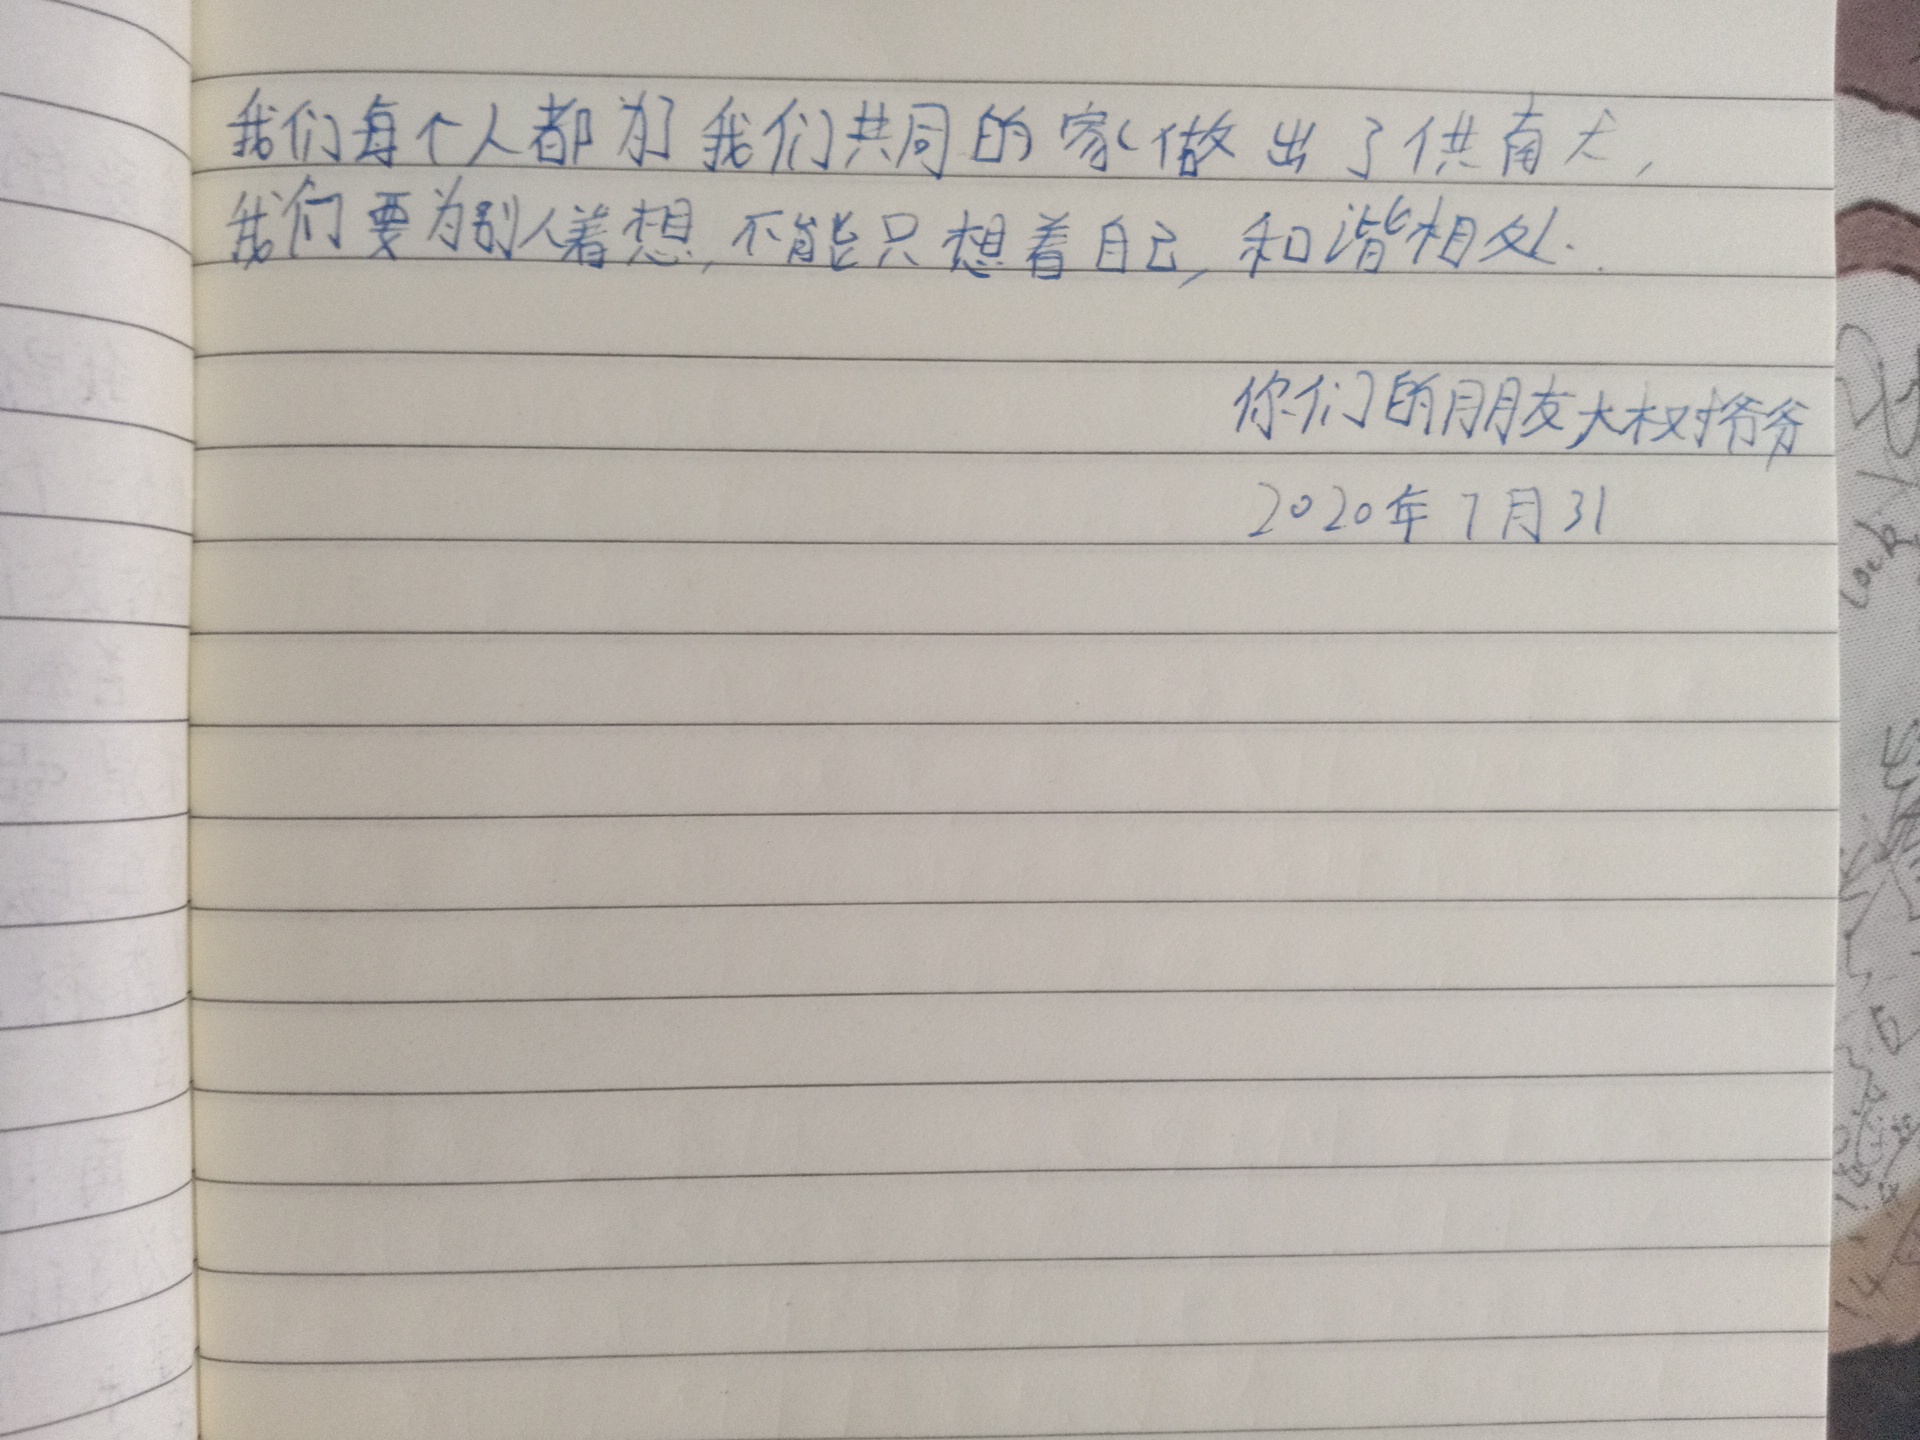 我们每个人都为了我们共同的家做出了供南犬,
我们要为别人着想,不能只想着自己,和谐相处.
你们的朋友大树爷爷
2020年7月31